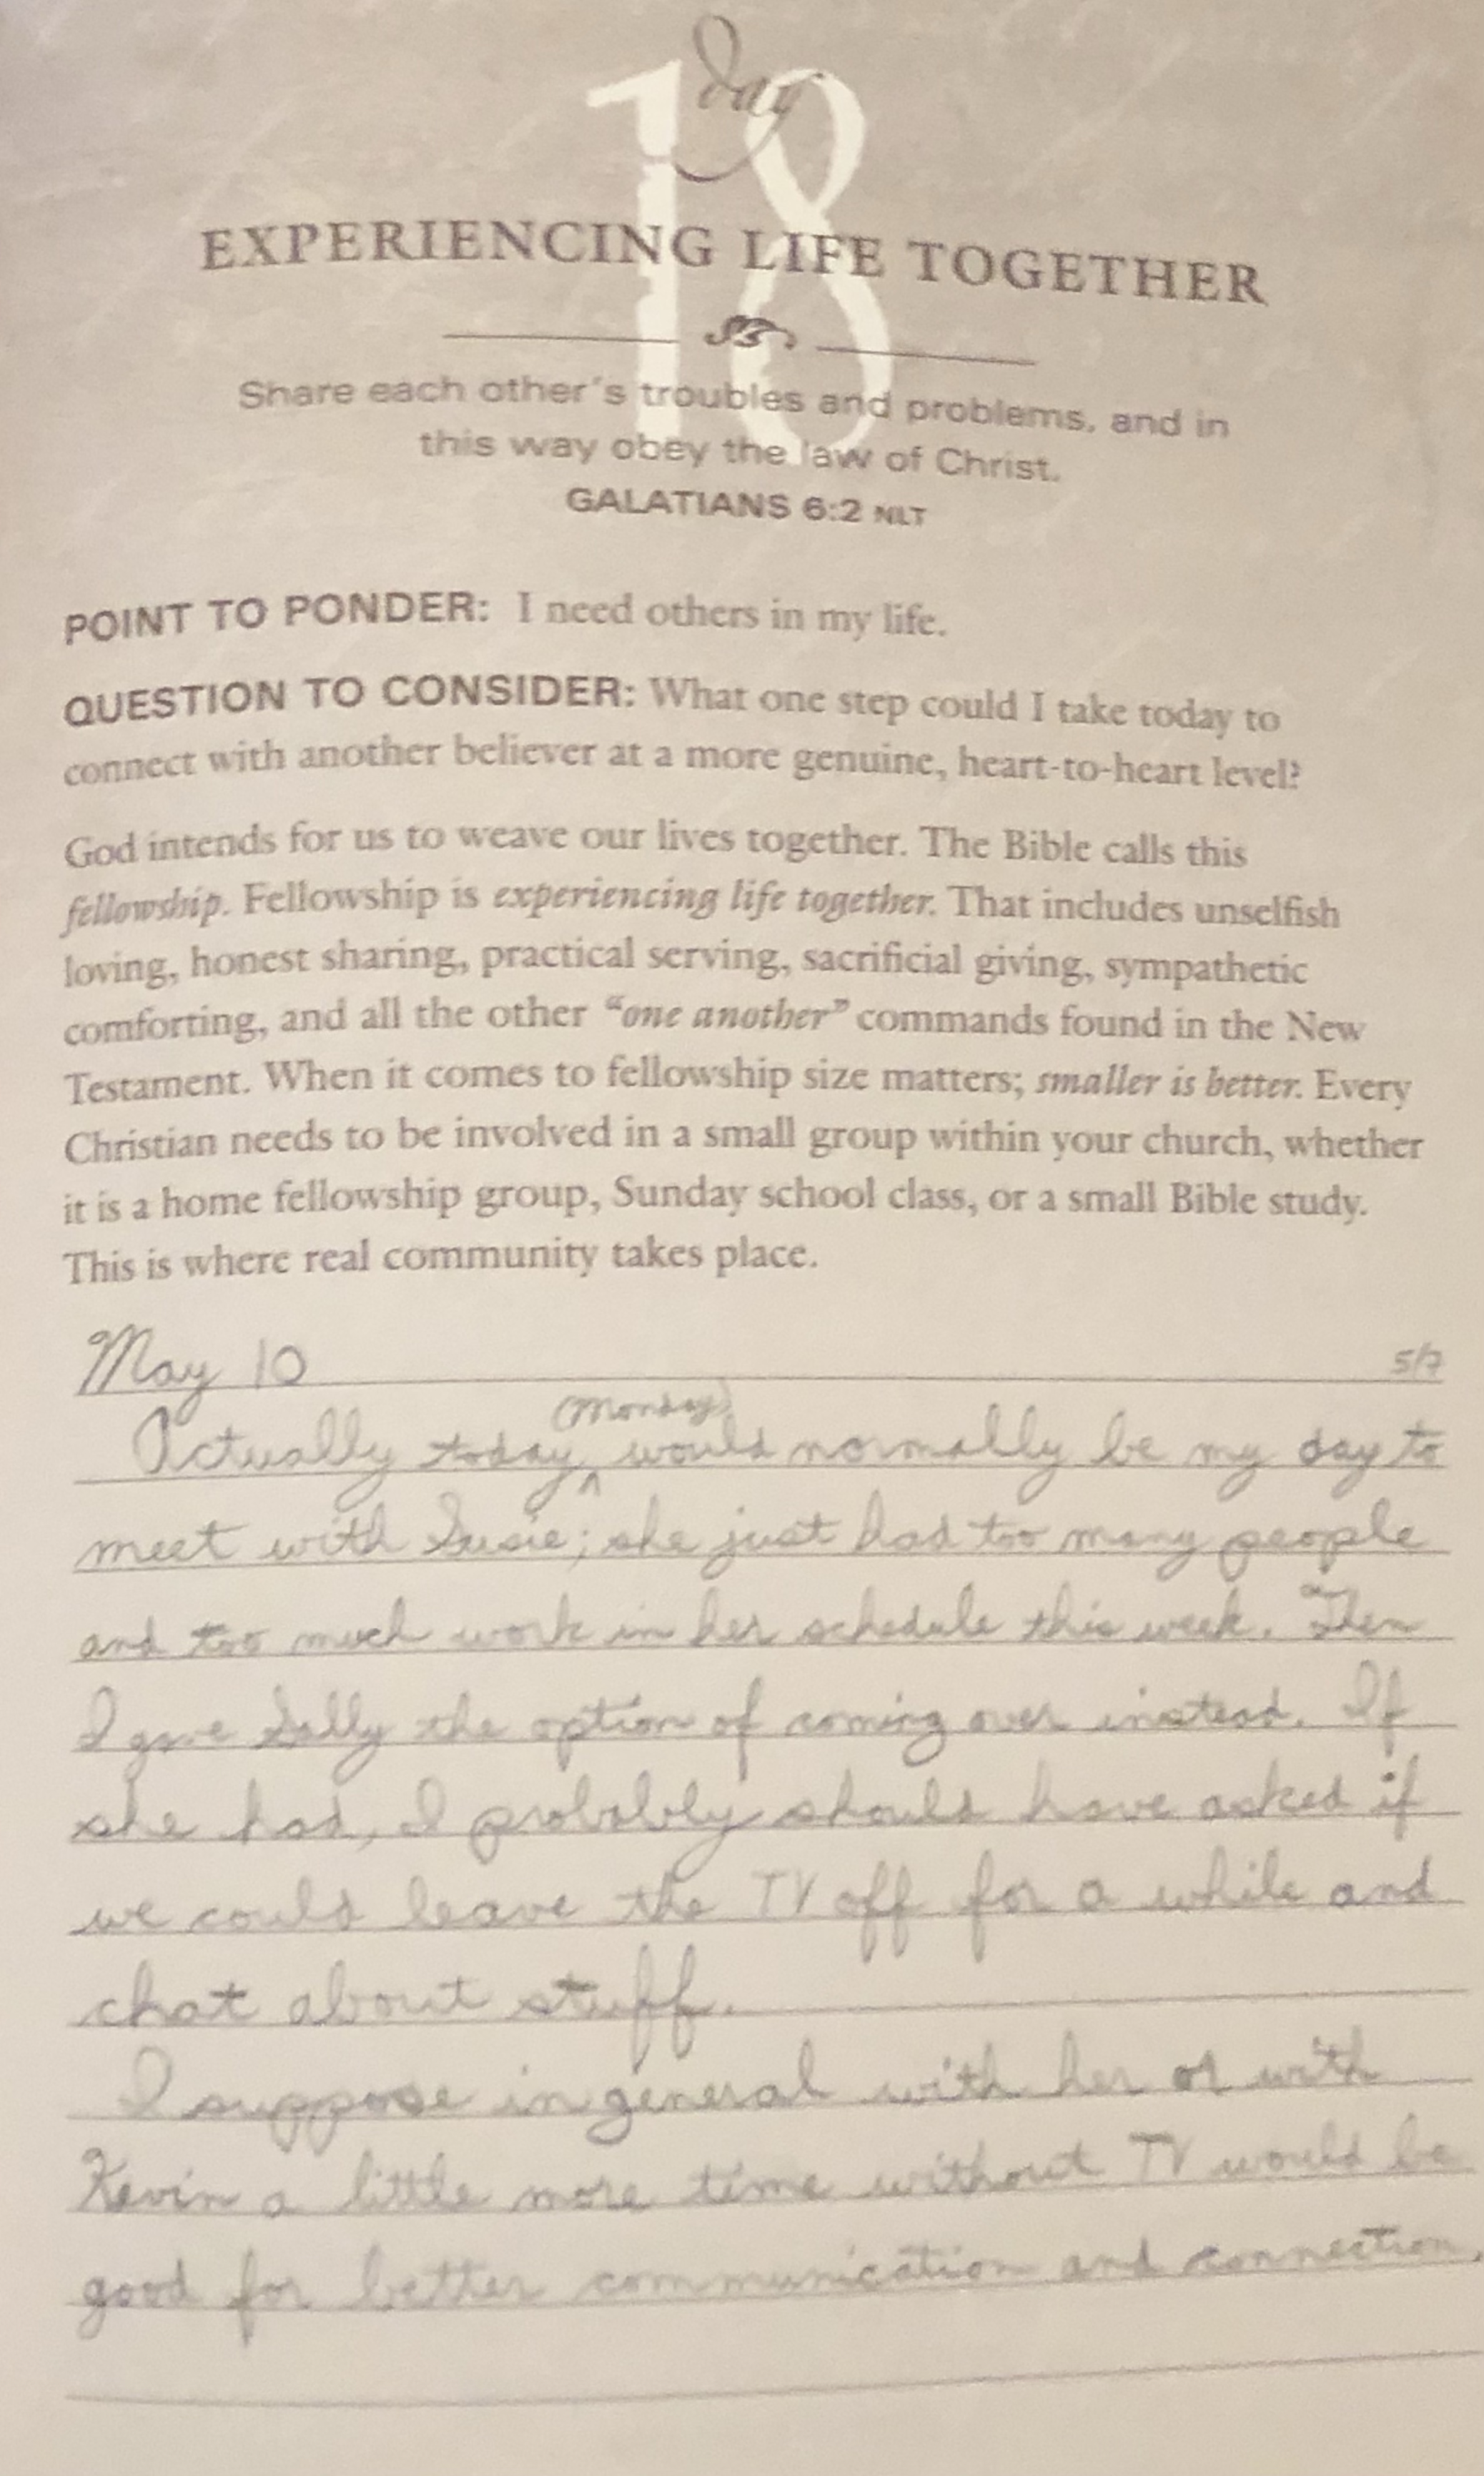 day
18
EXPERIENCING LIFE TOGETHER
Share each other's troubles and problems, and in
this way obey the law of Christ.
GALATIANS 6:2 NLT
POINT TO PONDER: I need others in my life.
QUESTION TO CONSIDER: What one step could I take today to
connect with another believer at a more genuine, heart-to-heart level?
God intends for us to weave our lives together. The Bible calls this
fellowship. Fellowship is experiencing life together. That includes unselfish
loving, honest sharing, practical serving, sacrificial giving, sympathetic
comforting, and all the other "one another" commands found in the New
Testament. When it comes to fellowship size matters; smaller is better. Every
Christian needs to be involved in a small group within your church, whether
it is a home fellowship group, Sunday school class, or a small Bible study.
This is where real community takes place.
May 10 5/7
(Monday)
Actually today ^ would normally be my day to
meet with Susie; she just had too many people
and too much work in her schedule this week. Then
I gave Sally the option of coming over instead. If
she had, I probably should have asked if
we could leave the TV off for a while and
chat about stuff.
I suppose in general with her or with
Kevin a little more time without TV would be
good for better communication and connection.